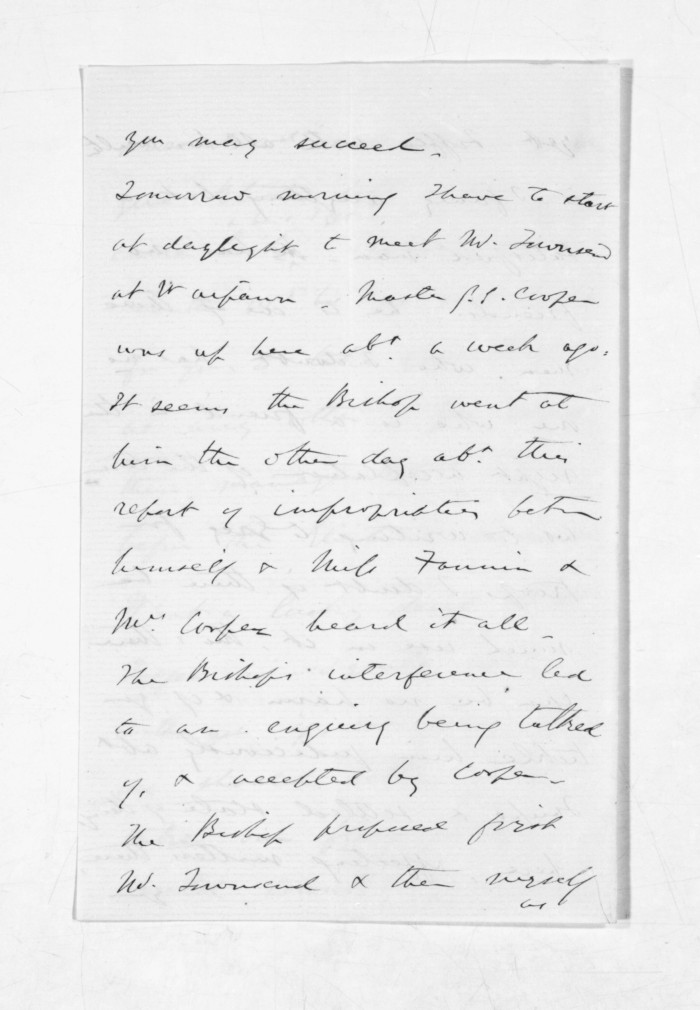 you may succeed.
Tomorrow morning I have to start
at daylight to meet Mr. Townsend
at Waipawa. Master G.S. Cooper
was up here abt. a week ago.
It seems the Bishop went at
him the other day abt. this
report of improprieties betn
himself & Miss Fannin &
Mrs Cooper heard it all
The Bishops interference led
to an enquiry being talked
of, & accepted by Cooper.
The Bishop proposed first
Mr. Townsend & then myself
as